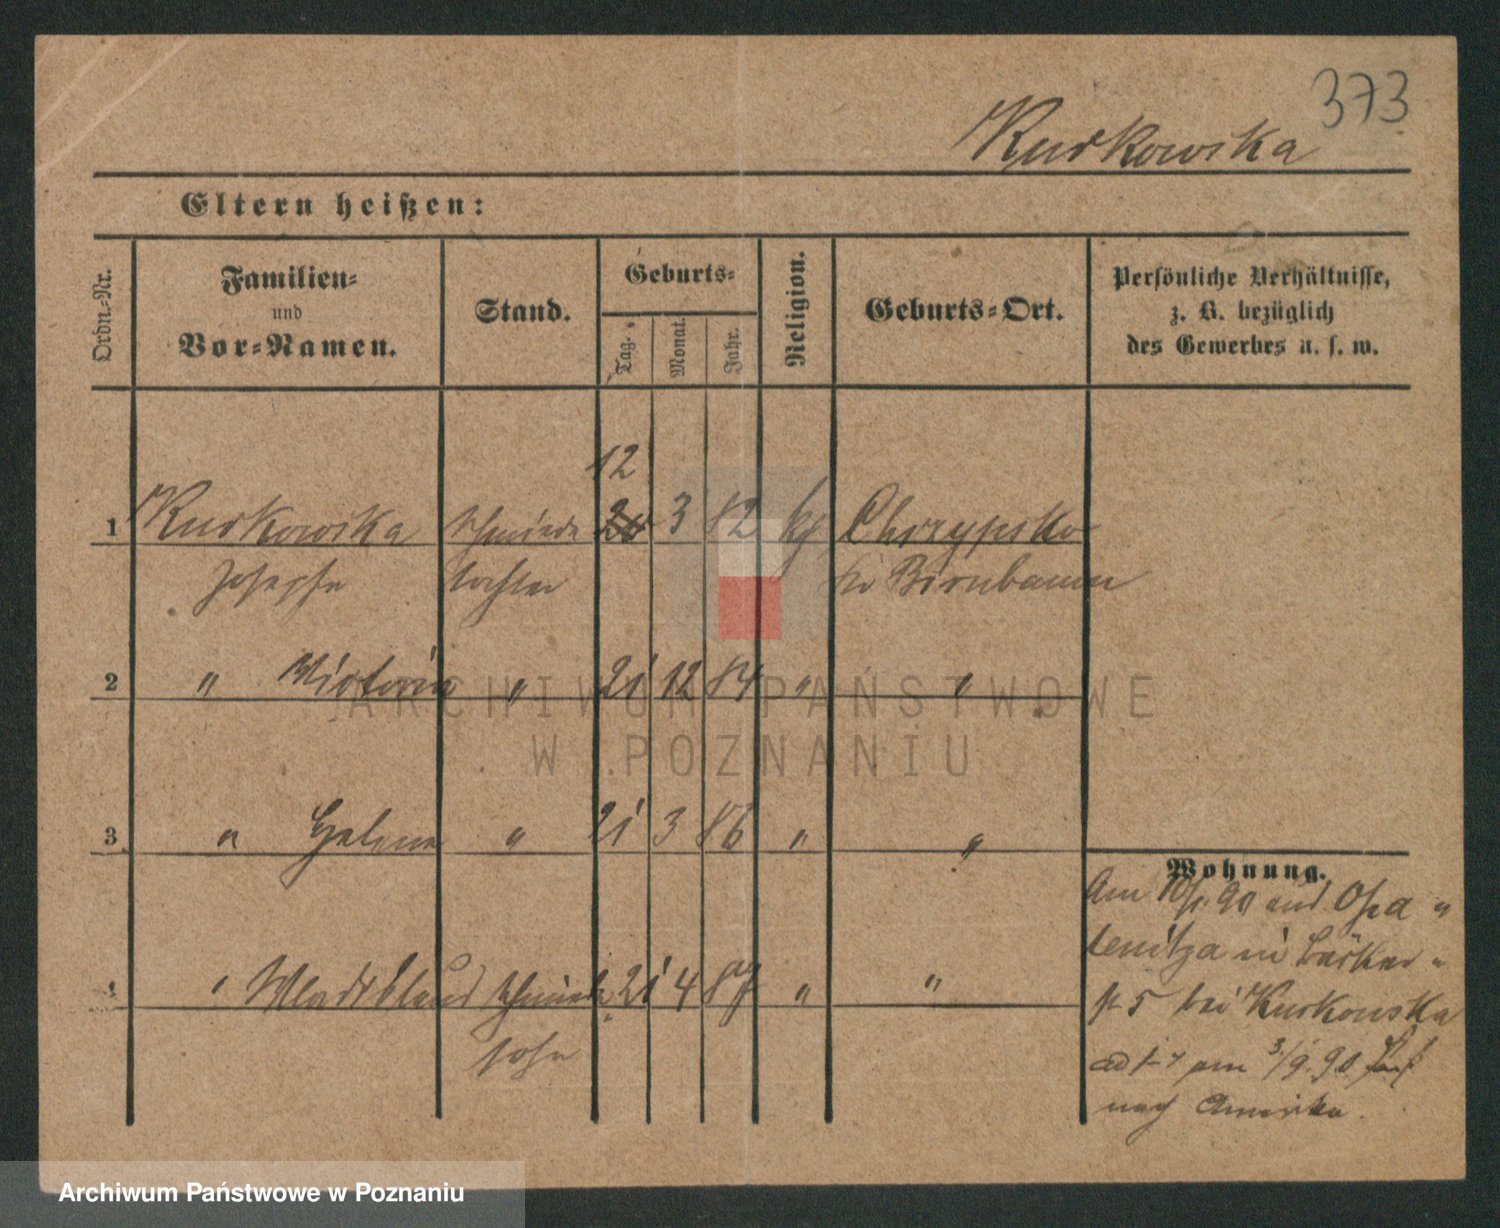 373
Kurkowska
Eltern heißen:
Ordn.-Nr.
Familien-
und
Vor-Namen.
Stand.
Geburts-
Tag.
Monat.
Jahr.
Religion.
Geburts-Ort.
Persönliche Verhältnisse,
z. B. bezüglich
des Gewerbes u. s. w.
12
1 Kurkowska Schmiede 3 82 kg Chrzypsko
Josepha tochter bei Birnbaum
2 " Victoria " 21 12 84 " "
3 " Helene " 21 3 86 " "
4 " Schmiede 21 4 87 " "
sohn
Wohnung.
Am 10/1. 90 aus Opa-
lenitza in Bäcker-
st 5 bei Kurkowska
ad 1-4 am 3/9. 90
nach Amerika.
ARCHIWUM PAŃSTWOWE
W POZNANIU
Archiwum Państwowe w Poznaniu